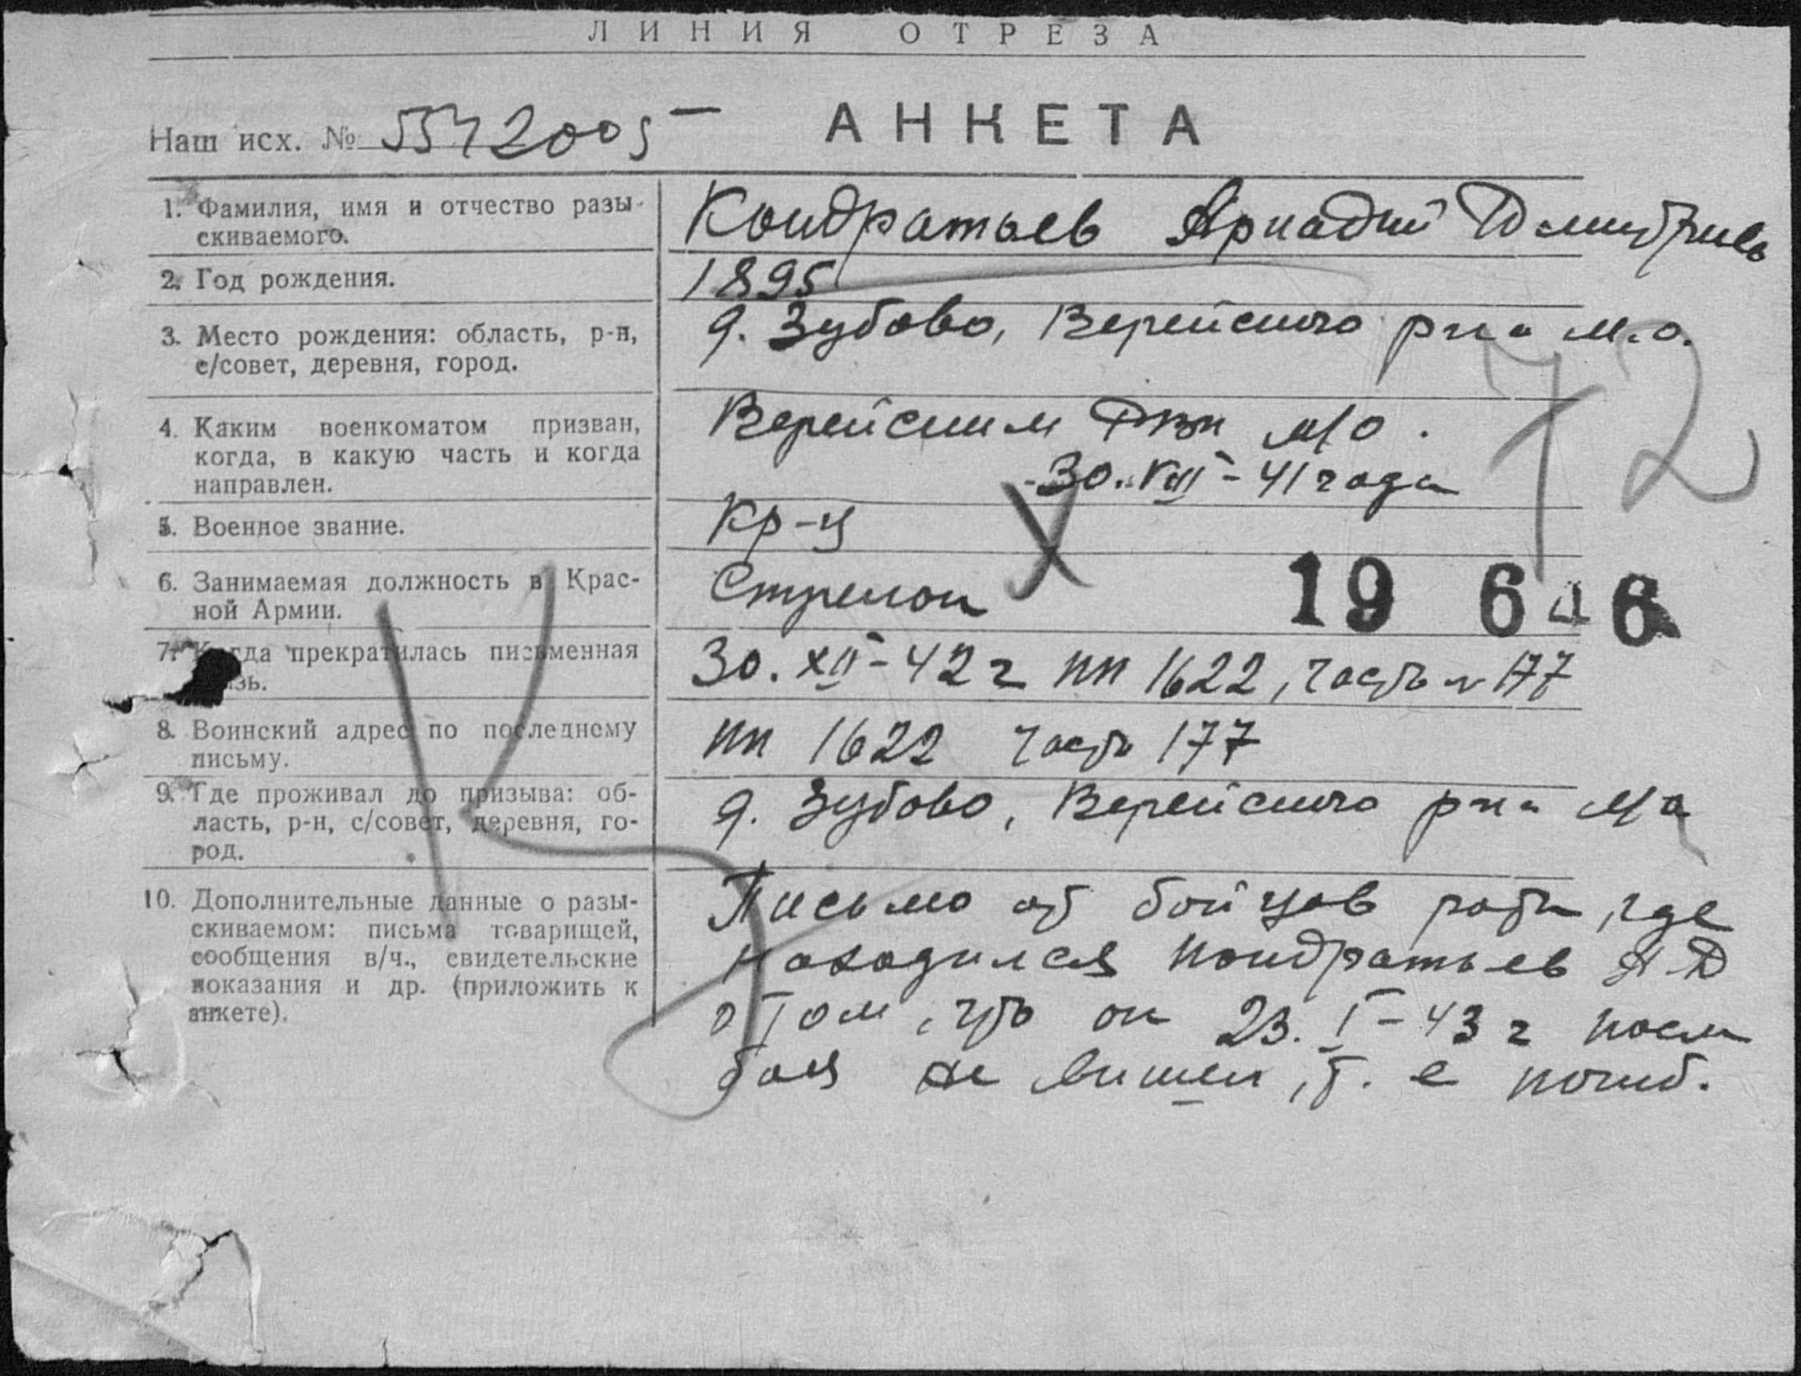 ЛИНИЯ ОТРЕЗА
Наш исх. № 5542005
АНКЕТА
1. Фамилия, имя и отчество разы-
скиваемого.
Кондратьев Аркадий Дмитриев
2. Год рождения.
1895
3. Место рождения: область, р-н,
с/совет, деревня, город.
д. Зубово, Верейского р-на М.О.
4. Каким военкоматом призван,
когда, в какую часть и когда
направлен.
Верейским РВК М/О.
30.VIII-41 года
5. Военное звание.
Кр-ц
6. Занимаемая должность в Крас-
ной Армии.
Стрелок
19 6 6
72
7. Когда прекратилась письменная
связь.
30.XII-42 г ПП 1622, часть № 177
8. Воинский адрес по последнему
письму.
ПП 1622 часть 177
9. Где проживал до призыва: об-
ласть, р-н, с/совет, деревня, го-
род.
д. Зубово, Верейского р-на М/О
10. Дополнительные данные о разы-
скиваемом: письма товарищей,
сообщения в/ч., свидетельские
показания и др. (приложить к
анкете).
Письмо от бойцов роты, где
находился Кондратьев А.Д
о том, что он 23.I-43 г после
боя не вышел, т.е погиб.